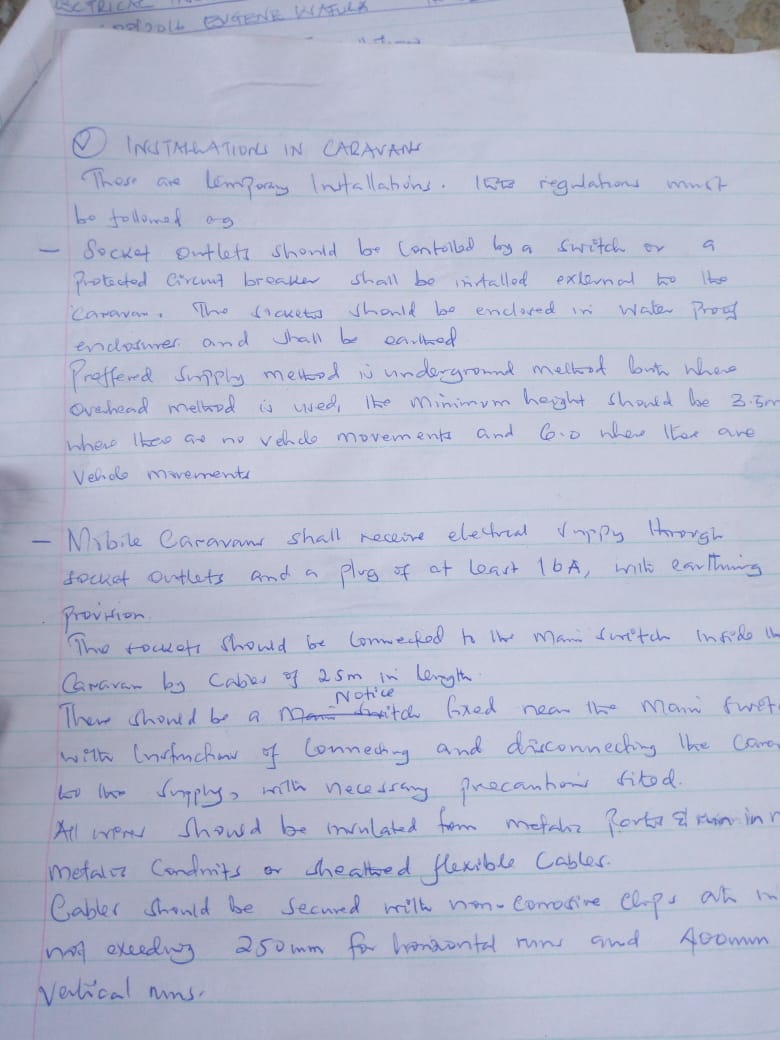 ECTRICAL
2016 EUGENE WAFULA
✓ INSTALLATIONS IN CARAVANS
These are temporary Installations. IEE regulations must
be followed eg
- Socket outlets should be Controlled by a switch or a
Protected Circuit breaker shall be installed external to the
Caravan. The sockets should be enclosed in Water Proof
enclosures and shall be earthed
Preffered Supply method is underground method but where
Overhead method is used, the minimum height should be 3.5m
where there are no vehicle movements and 6.0 where there are
Vehicle movements
- Mobile Caravans shall receive electrical supply through
socket outlets and a plug of at least 16A, with earthning
provision.
The sockets should be Connected to the Main switch Inside th
Caravan by Cables of 25m in length.
Notice
There should be a Main Switch fixed near the Main swit
with Instructions of Connecting and disconnecting the Cara
to the supply, with necessary precautions sited.
All wires should be insulated from metalic Parts & run in n
metalic Conduits or sheathed flexible Cables.
Cables should be secured with non-corrosive clips at in
not exeeding 250mm for horizontal runs and 400mm
Vertical runs.